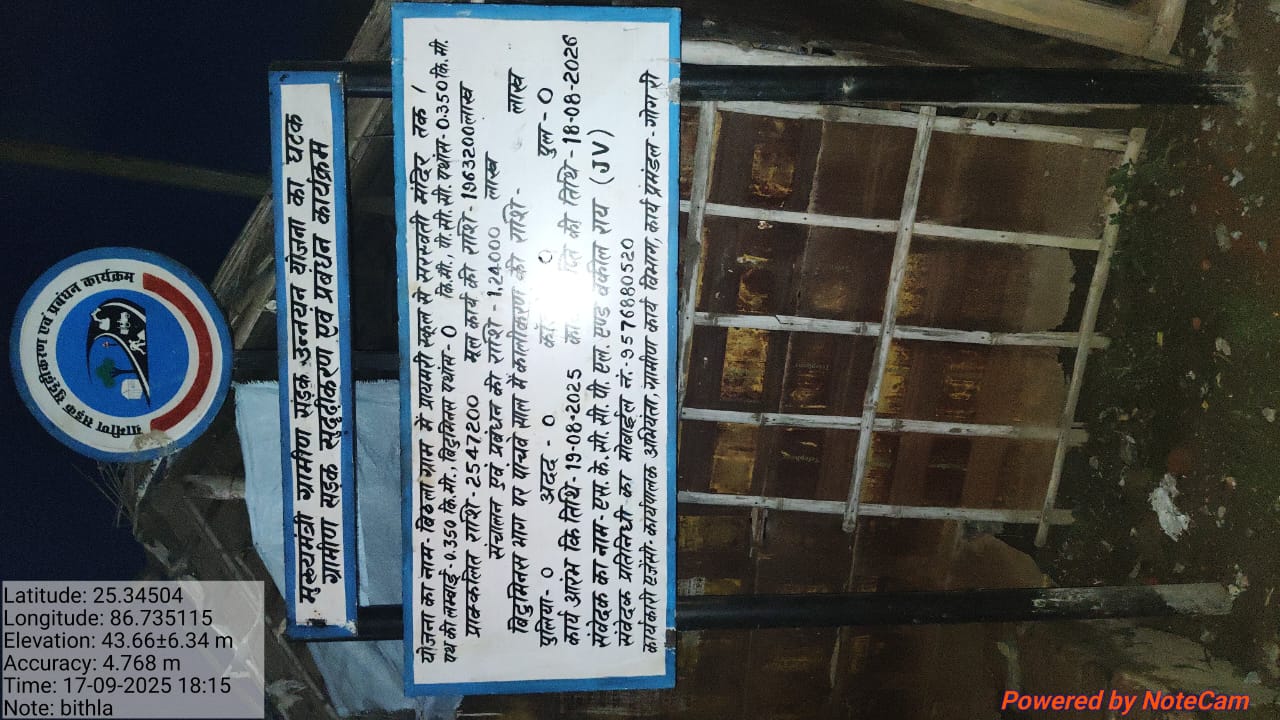 ग्रामीण सड़क सुदृढ़ीकरण एवं प्रबंधन कार्यक्रम
मुख्यमंत्री ग्रामीण सड़क उन्नयन योजना का घटक
ग्रामीण सड़क सुदृढ़ीकरण एवं प्रबंधन कार्यक्रम
योजना का नाम- बिठला ग्राम में प्राथमरी स्कूल से सरस्वती मंदिर तक /
पथ की लम्बाई-0.350 कि.मी., बिटुमिनस पथांस- 0 कि.मी., पी.सी.सी. पथांस- 0.350 कि.मी.
प्राक्कलित राशि- 2547200 मूल कार्य की राशि- 1963200 लाख
संचालन एवं प्रबंधन की राशि- 1,24000 लाख
बिटुमिनस भाग पर पांचवे साल में कालीकरण की राशि- लाख
पुलिया- 0 अदद - 0 0 पुल - 0
कार्य आरंभ कि तिथि- 19-08-2025 की तिथि- 18-08-2026
संवेदक का नाम- एस. के. सी. सी. पी. एल. एण्ड वकील राय (JV)
संवेदक प्रतिनिधी का मोबाईल नं.-9576880520
कार्यकारी एजेंसी- कार्यपालक अभियंता, ग्रामीण कार्य विभाग, कार्य प्रमंडल - गोगरी
Latitude: 25.34504
Longitude: 86.735115
Elevation: 43.66±6.34 m
Accuracy: 4.768 m
Time: 17-09-2025 18:15
Note: bithla
Powered by NoteCam